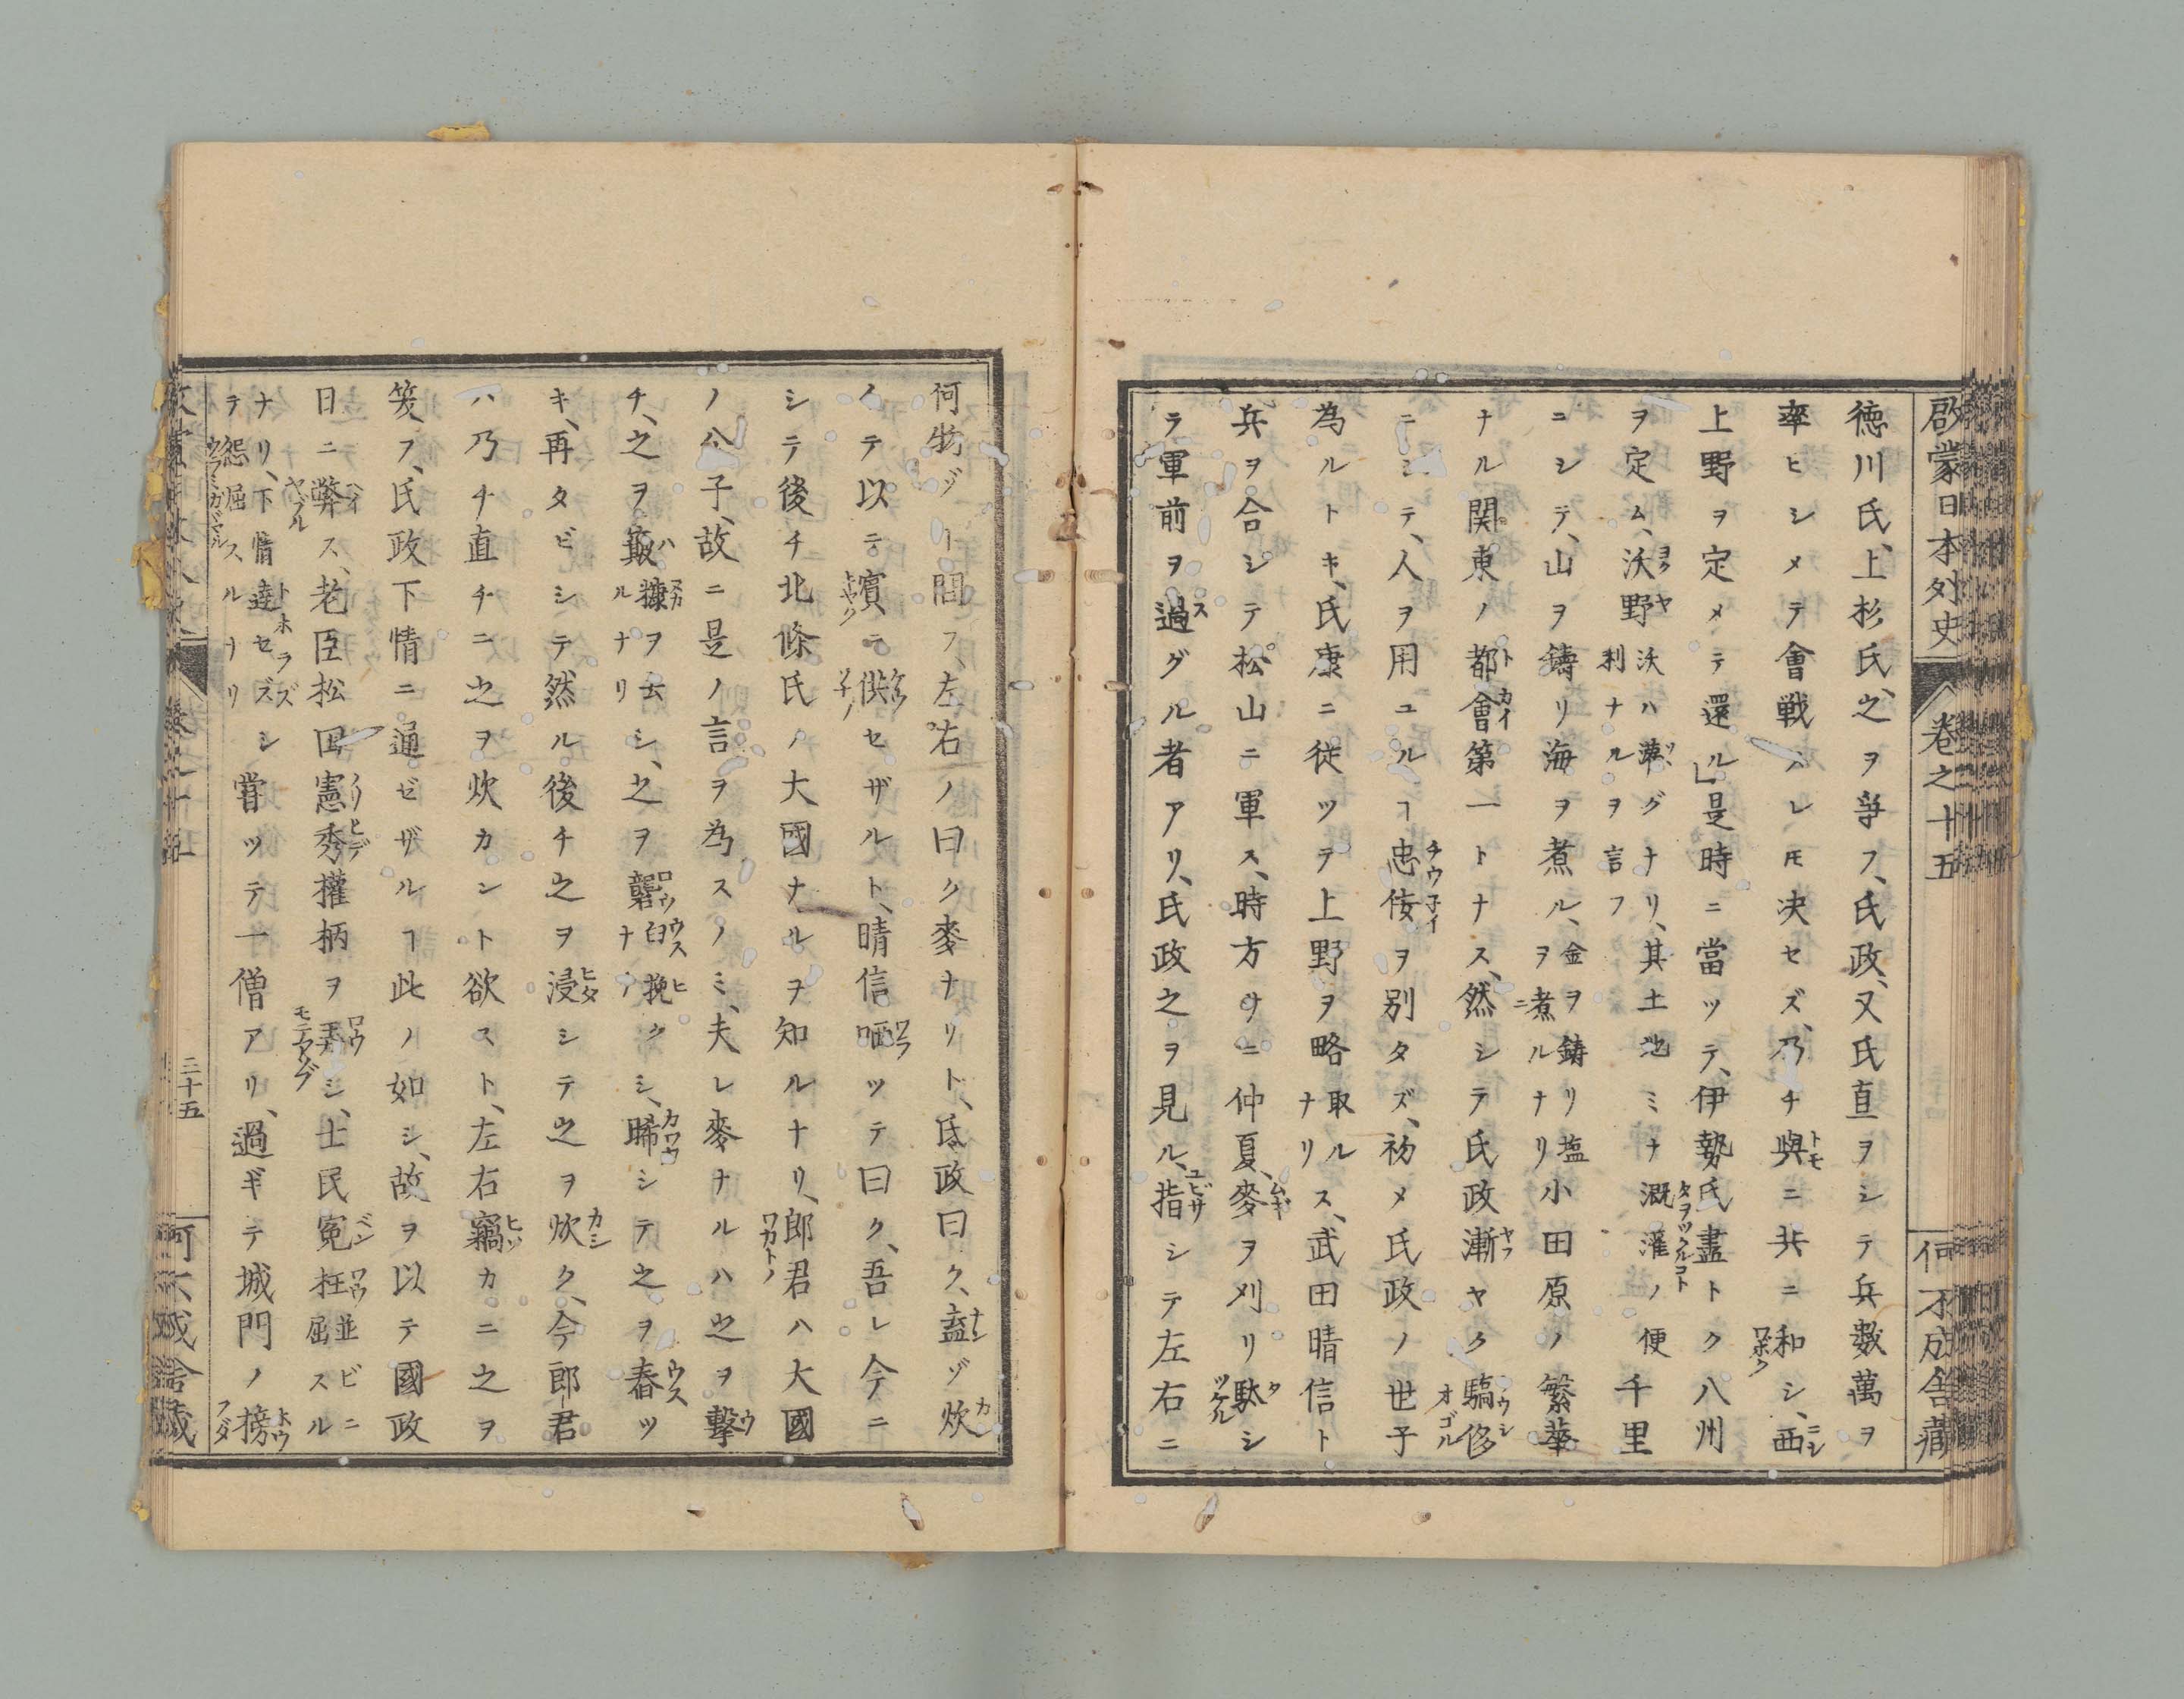 啓蒙日本列史 卷之十五 何不成舎藏
德川氏、上杉氏、之ヲ爭フ、氏政、又氏直ヲシテ兵數萬ヲ
率ヒシメテ會戰ス、レ𪜈決セズ、乃チ與ニ共ニ和シ、西
上野ヲ定メテ還ル」是時ニ當ツテ、伊勢氏盡トク八州
ヲ定ム、沃野沃ハ グナリ、其土地ミナ漑灌ノ便利ナルヲ言フ千里
ニシテ、山ヲ鑄リ海ヲ煮ル、金ヲ鑄リ塩ヲ煮ルナリ小田原ノ繁華
ナル関東ノ都會第一トナス、然シテ氏政漸ヤク驕侈
ニシテ、人ヲ用ユルヿ忠佞ヲ別タズ、初メ氏政ノ世子
為ルトキ、氏康ニ從ツテ上野ヲ略取ルナリス、武田晴信ト
兵ヲ合シテ松山ニ軍ス、時方サニ仲夏、麥ヲ刈リ駄シ
ラ軍前ヲ過グル者アリ、氏政之ヲ見ル、指シテ左右ニ
何物ゾト問フ、左右ノ曰ク麥ナリト、氏政曰ク、盍ゾ炊
イテ以テ賓ニ供セザルト、晴信哂ツテ曰ク、吾レ今ニ
シテ後チ北條氏ノ大國ナルヲ知ルナリ、郎君ハ大國
ノ公子、故ニ是ノ言ヲ為スノミ、夫レ麥ナルハ之ヲ擊
チ、之ヲ簸糠ヲ去ルナリシ、之ヲ礱臼挽クナリシ、晞シテ之ヲ舂ツ
キ、再タビシテ然ル後チ之ヲ浸シテ之ヲ炊ク、今郎君
ハ乃チ直チニ之ヲ炊カント欲スト、左右竊カニ之ヲ
笑フ、氏政下情ニ通ゼザルヿ此ノ如シ、故ヲ以テ國政
日ニ弊ス、老臣松田憲秀權柄ヲ弄シ、士民冤枉並ビニ屈スル
ナリ、下情達セズシテ怨屈スルナリ嘗ツテ一僧アリ、過ギテ城門ノ榜
三十五